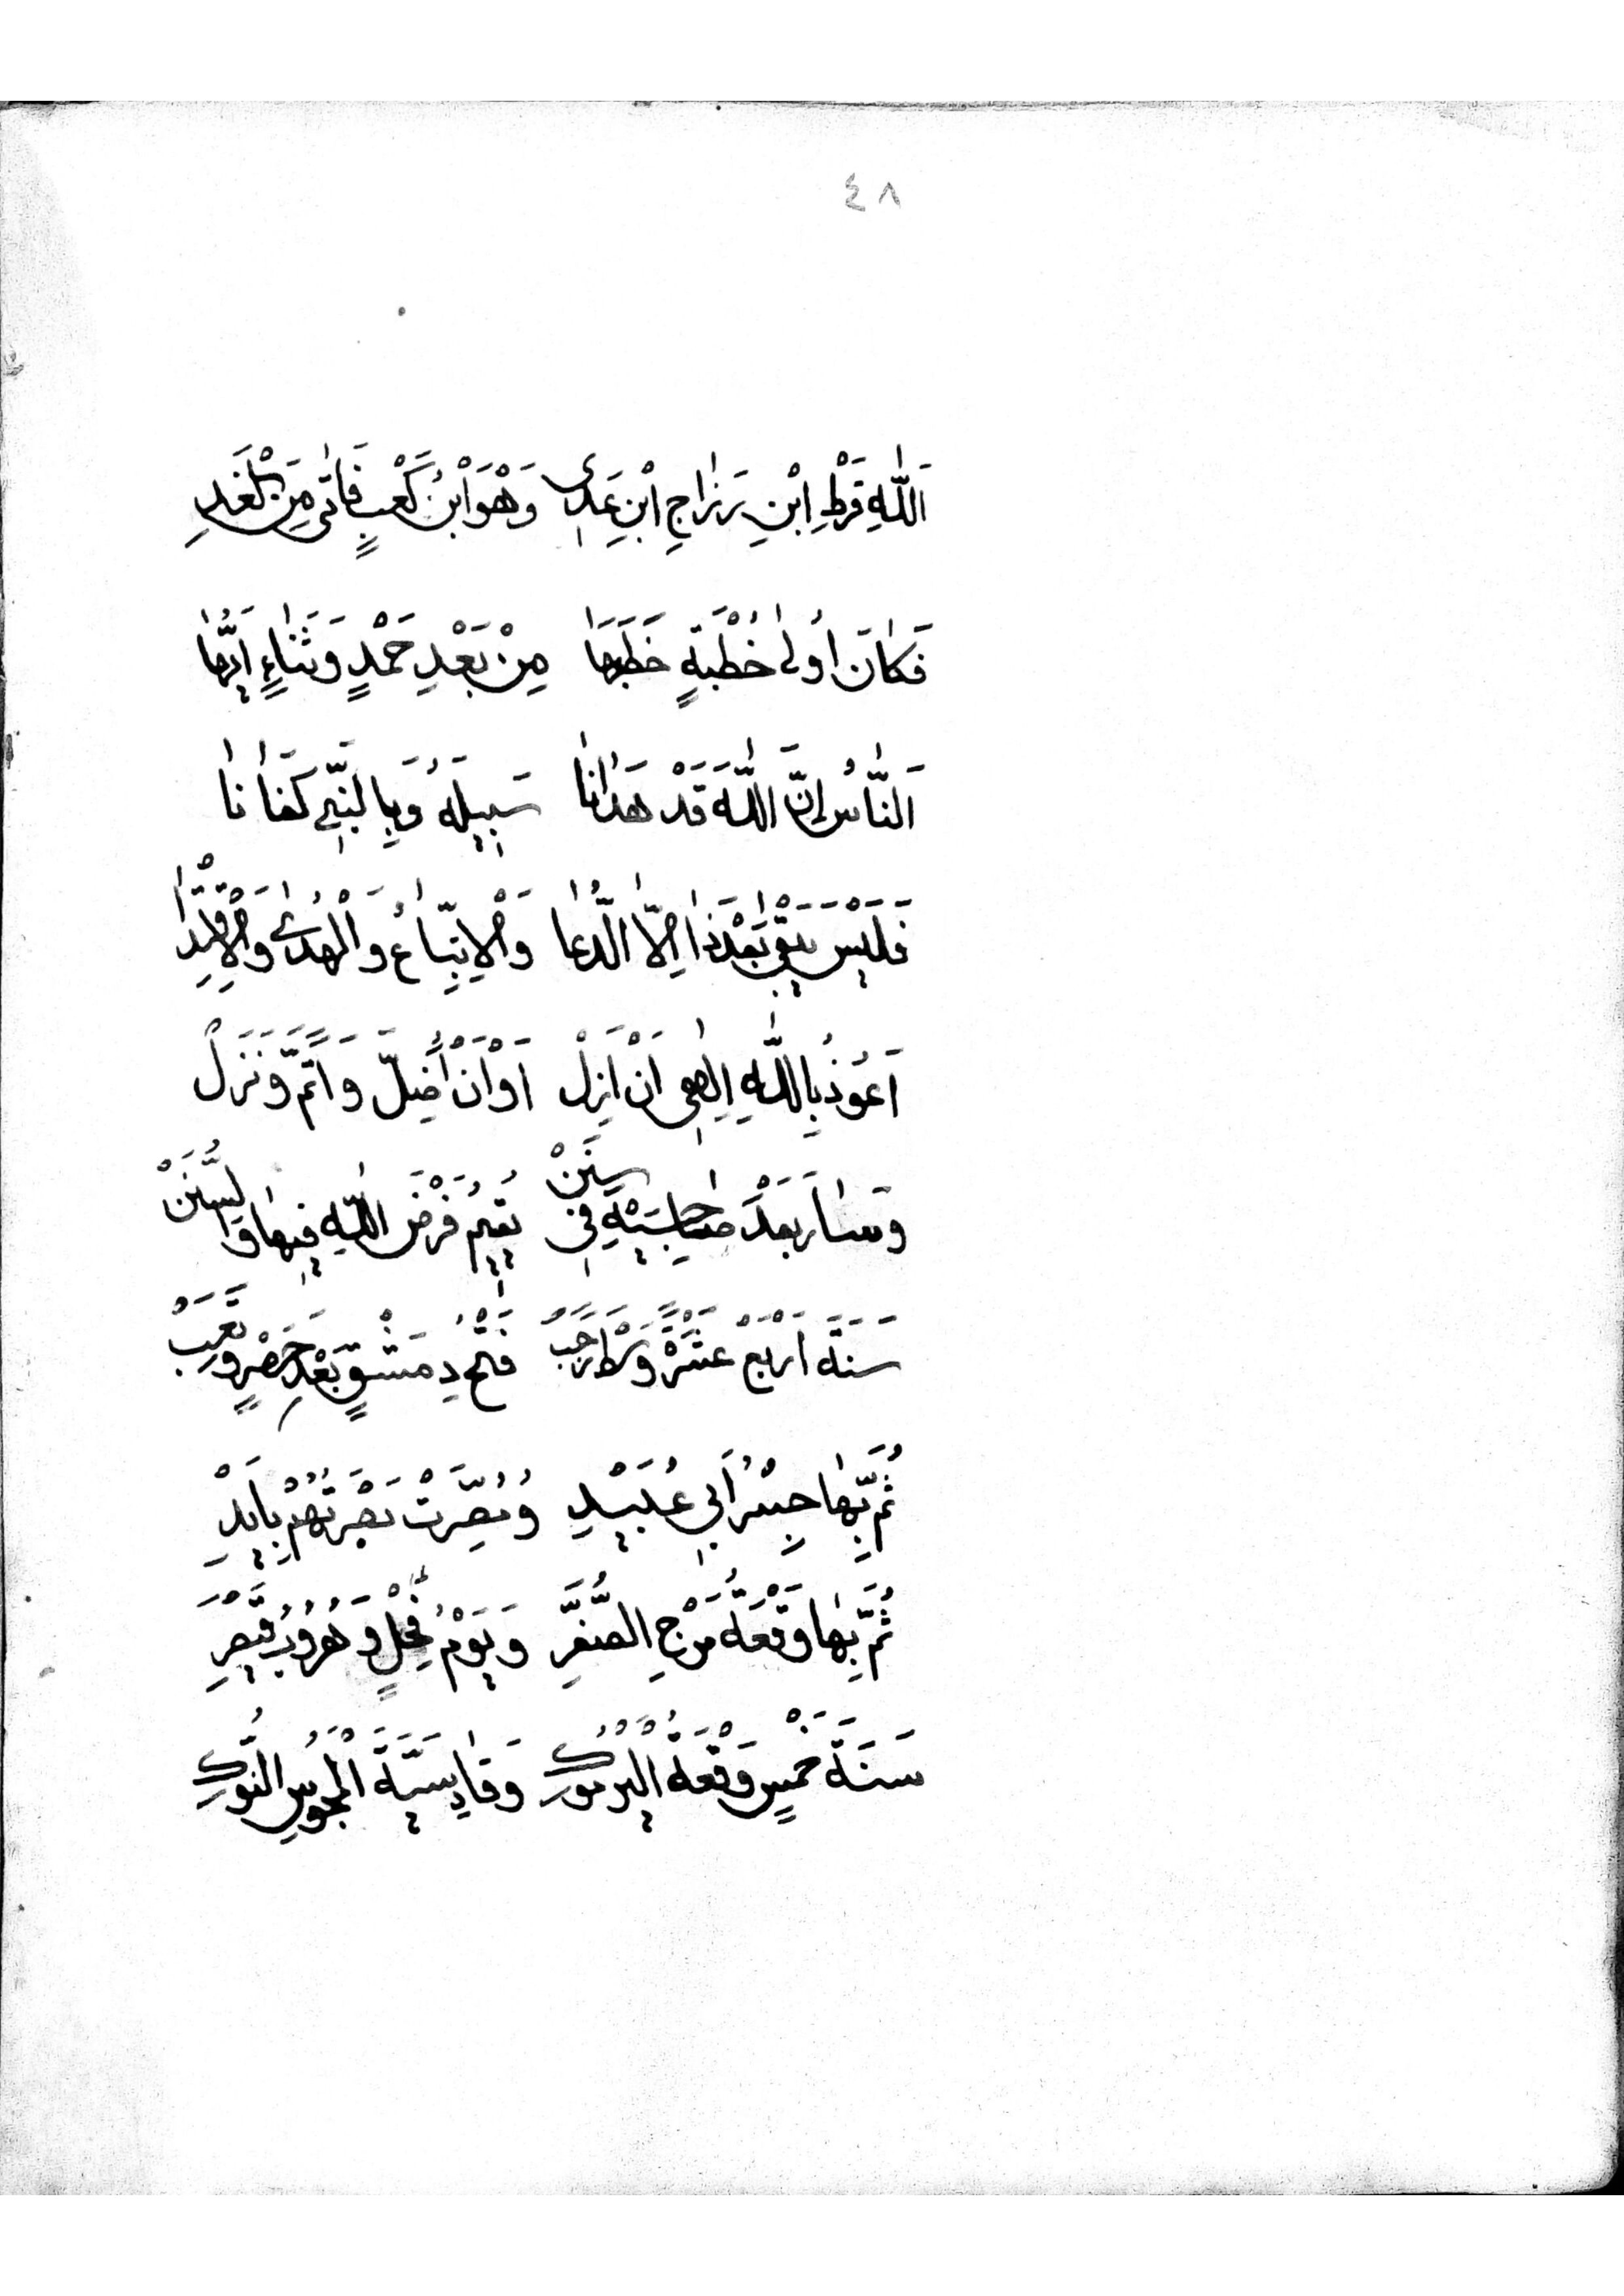 ٤٨
اَللّٰهِ قَرْطِ ابْنِ رَزٰاحِ ابْنِ عَدِى وَهْوَ ابْنُ كَعْبٍ فَاَتٰى مِنْ بَلْغَدِ
فَكٰانَ اُولٰى خُطْبَةٍ خَطَبَهٰا مِنْ بَعْدِ حَمْدٍ وَثَنٰاءٍ اَيُّهٰا
اَلنّٰاسُ اِنَّ اللّٰهَ قَدْ هَدٰانٰا سَبِيلَهُ وَبِالنَّبِىِّ كَفٰانٰا
فَلَيْسَ يَبْقٰى بَعْدَ ذٰا اِلَّا الدُّعٰا وَالْاِتِّبٰاعُ وَالْهُدٰى وَالْاِقْتِدٰا
اَعُوذُ بِاللّٰهِ اِلٰهِى اَنْ اَزِلْ اَوْ اَنْ اَضِلَّ وَاَتَمَّ وَنَزَلْ
وَسٰارَ بَعْدَ صٰاحِبَيْهِ فِى سَنَنْ يُقِيمُ فَرْضَ اللّٰهِ فِيهٰا وَالسُّنَنْ
سَنَةَ اَرْبَعْ عَشْرَةً وَسْطَ رَجَبْ فَتْحُ دِمَشْقٍ بَعْدَ حَصْرٍ وَتَعَبْ
ثُمَّ بِهٰا جِسْرُ اَبِى عُبَيْدِ وَبُصِّرَتْ بَصْرَتُهُمْ بِاَيْدِ
ثُمَّ بِهٰا وَقْعَةُ مَرْجِ الصُّفَّرِ وَيَوْمُ فِحْلٍ وَهُرُوبُ قَيْصَرِ
سَنَةَ خَمْسٍ وَقْعَةُ الْيَرْمُوكِ وَقٰادِسِيَّةَ الْمَجُوسِ النُّوكِ